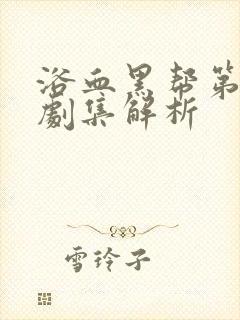 浴血黑帮第
劇集解析
雪玲子